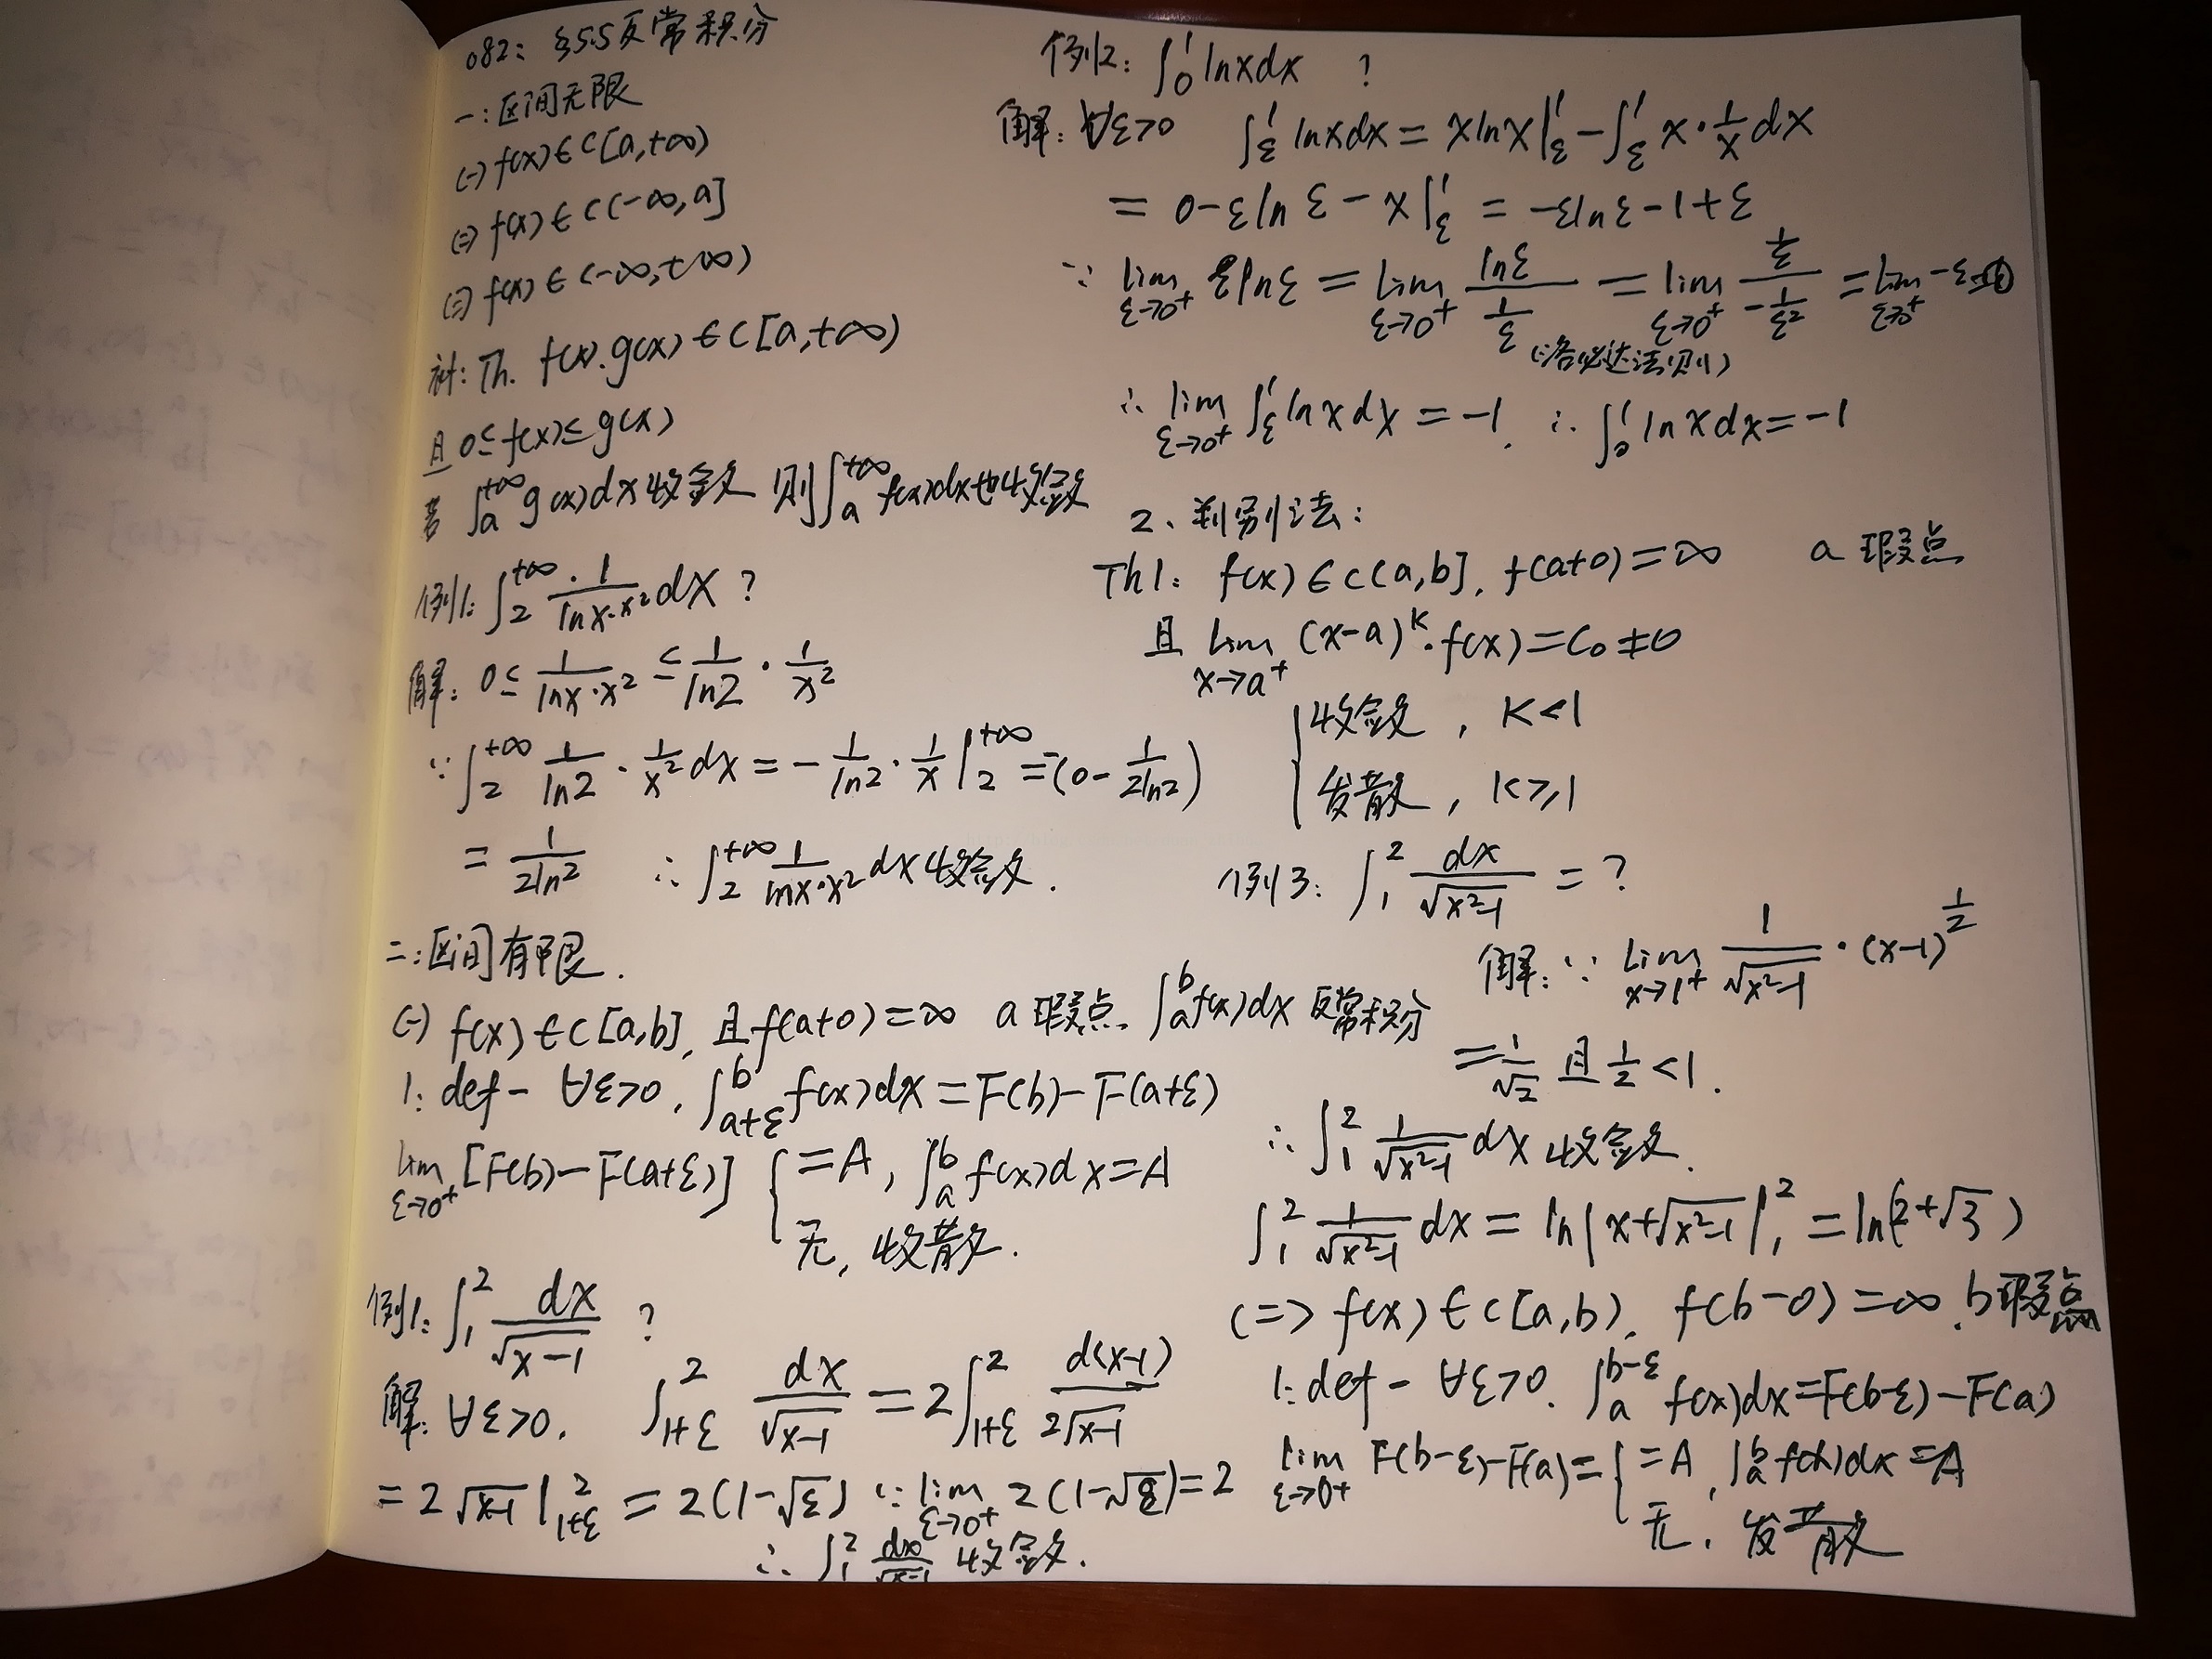 082: §5.5反常积分
一: 区间无限
(一) f(x)∈C[a,+∞)
(二) f(x)∈C(-∞,a]
(三) f(x)∈(-∞,+∞)
补: Th. f(x).g(x)∈C[a,+∞)
且 0≤f(x)≤g(x)
若 ∫_a^{+∞} g(x)dx收敛 则∫_a^{+∞} f(x)dx也收敛
例1: ∫_2^{+∞} 1/(lnx·x²) dx ?
解: 0≤ 1/(lnx·x²) ≤ 1/ln2 · 1/x²
∵ ∫_2^{+∞} 1/ln2 · 1/x² dx = -1/ln2 · 1/x |_2^{+∞} = -(0 - 1/(2ln2))
= 1/(2ln2) ∴ ∫_2^{+∞} 1/(lnx·x²) dx收敛.
二: 区间有限.
(一) f(x)∈C[a,b], 且f(a+0)=∞ a 瑕点. ∫_a^b f(x)dx 反常积分
1: def - ∀ε>0, ∫_{a+ε}^b f(x)dx = F(b)-F(a+ε)
lim_{ε→0⁺} [F(b)-F(a+ε)] { =A, ∫_a^b f(x)dx=A
无, 收散.
例1: ∫_1^2 dx/√(x-1) ?
解: ∀ε>0, ∫_{1+ε}^2 dx/√(x-1) = 2∫_{1+ε}^2 d(x-1)/(2√(x-1))
= 2√(x-1) |_{1+ε}^2 = 2(1-√ε) ∵ lim_{ε→0⁺} 2(1-√ε)=2
∴ ∫_1^2 dx/√(x-1) 收敛.
例2: ∫_0^1 lnxdx ?
解: ∀ε>0 ∫_ε^1 lnxdx = xlnx|_ε^1 - ∫_ε^1 x·1/x dx
= 0-εlnε - x|_ε^1 = -εlnε-1+ε
∵ lim_{ε→0⁺} εlnε = lim_{ε→0⁺} lnε/(1/ε) = lim_{ε→0⁺} (1/ε)/(-1/ε²) = lim_{ε→0⁺} -ε=0
(洛必达法则)
∴ lim_{ε→0⁺} ∫_ε^1 lnxdx = -1. ∴ ∫_0^1 lnxdx=-1
2、判别法:
Th1: f(x)∈C(a,b], f(a+0)=∞ a 瑕点
且 lim_{x→a⁺} (x-a)^k·f(x)=C₀≠0
{ 收敛, K<1
发散, K≥1
例3: ∫_1^2 dx/√(x²-1) = ?
解: ∵ lim_{x→1⁺} 1/√(x²-1) · (x-1)^{1/2}
= 1/√2 且 1/2<1.
∴ ∫_1^2 1/√(x²-1) dx 收敛.
∫_1^2 1/√(x²-1) dx = ln|x+√(x²-1)|_1^2 = ln(2+√3)
(二) f(x)∈C[a,b), f(b-0)=∞. b瑕点
1: def - ∀ε>0. ∫_a^{b-ε} f(x)dx=F(b-ε)-F(a)
lim_{ε→0⁺} F(b-ε)-F(a)= { =A, ∫_a^b f(x)dx=A
无, 发散